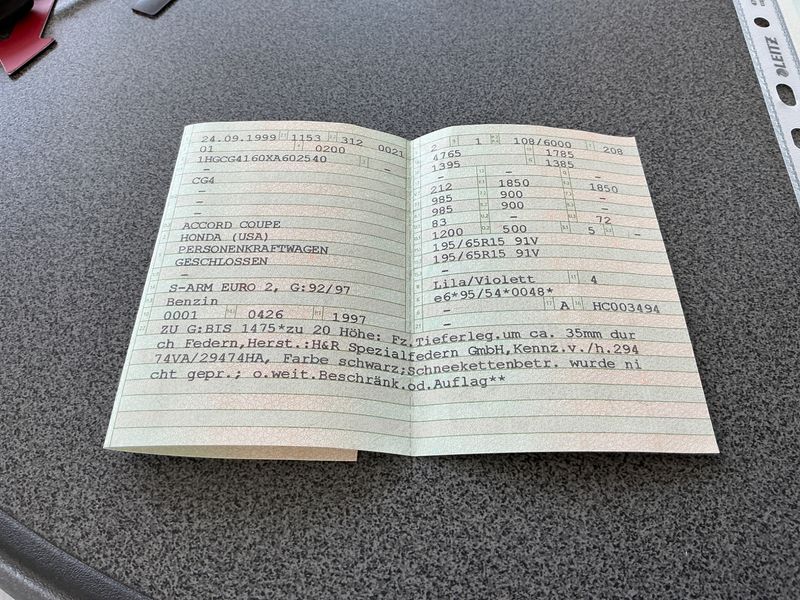 24.09.1999 1153 312 0021
01 0200
1HGCG4160XA602540 -
-
CG4
-
-
-
ACCORD COUPE
HONDA (USA)
PERSONENKRAFTWAGEN
GESCHLOSSEN
-
S-ARM EURO 2, G:92/97
Benzin
0001 0426 1997
2 1 108/6000 208
4765 1785
1395 1385
- - -
212 1850 1850
985 900 -
985 900 -
83 - 72
1200 500 5 -
195/65R15 91V
195/65R15 91V
-
-
Lila/Violett 4
e6*95/54*0048*
- A HC003494
-
ZU G:BIS 1475*zu 20 Höhe: Fz.Tieferleg.um ca. 35mm dur
ch Federn,Herst.:H&R Spezialfedern GmbH,Kennz.v./h.294
74VA/29474HA, Farbe schwarz;Schneekettenbetr. wurde ni
cht gepr.; o.weit.Beschränk.od.Auflag**
LEITZ